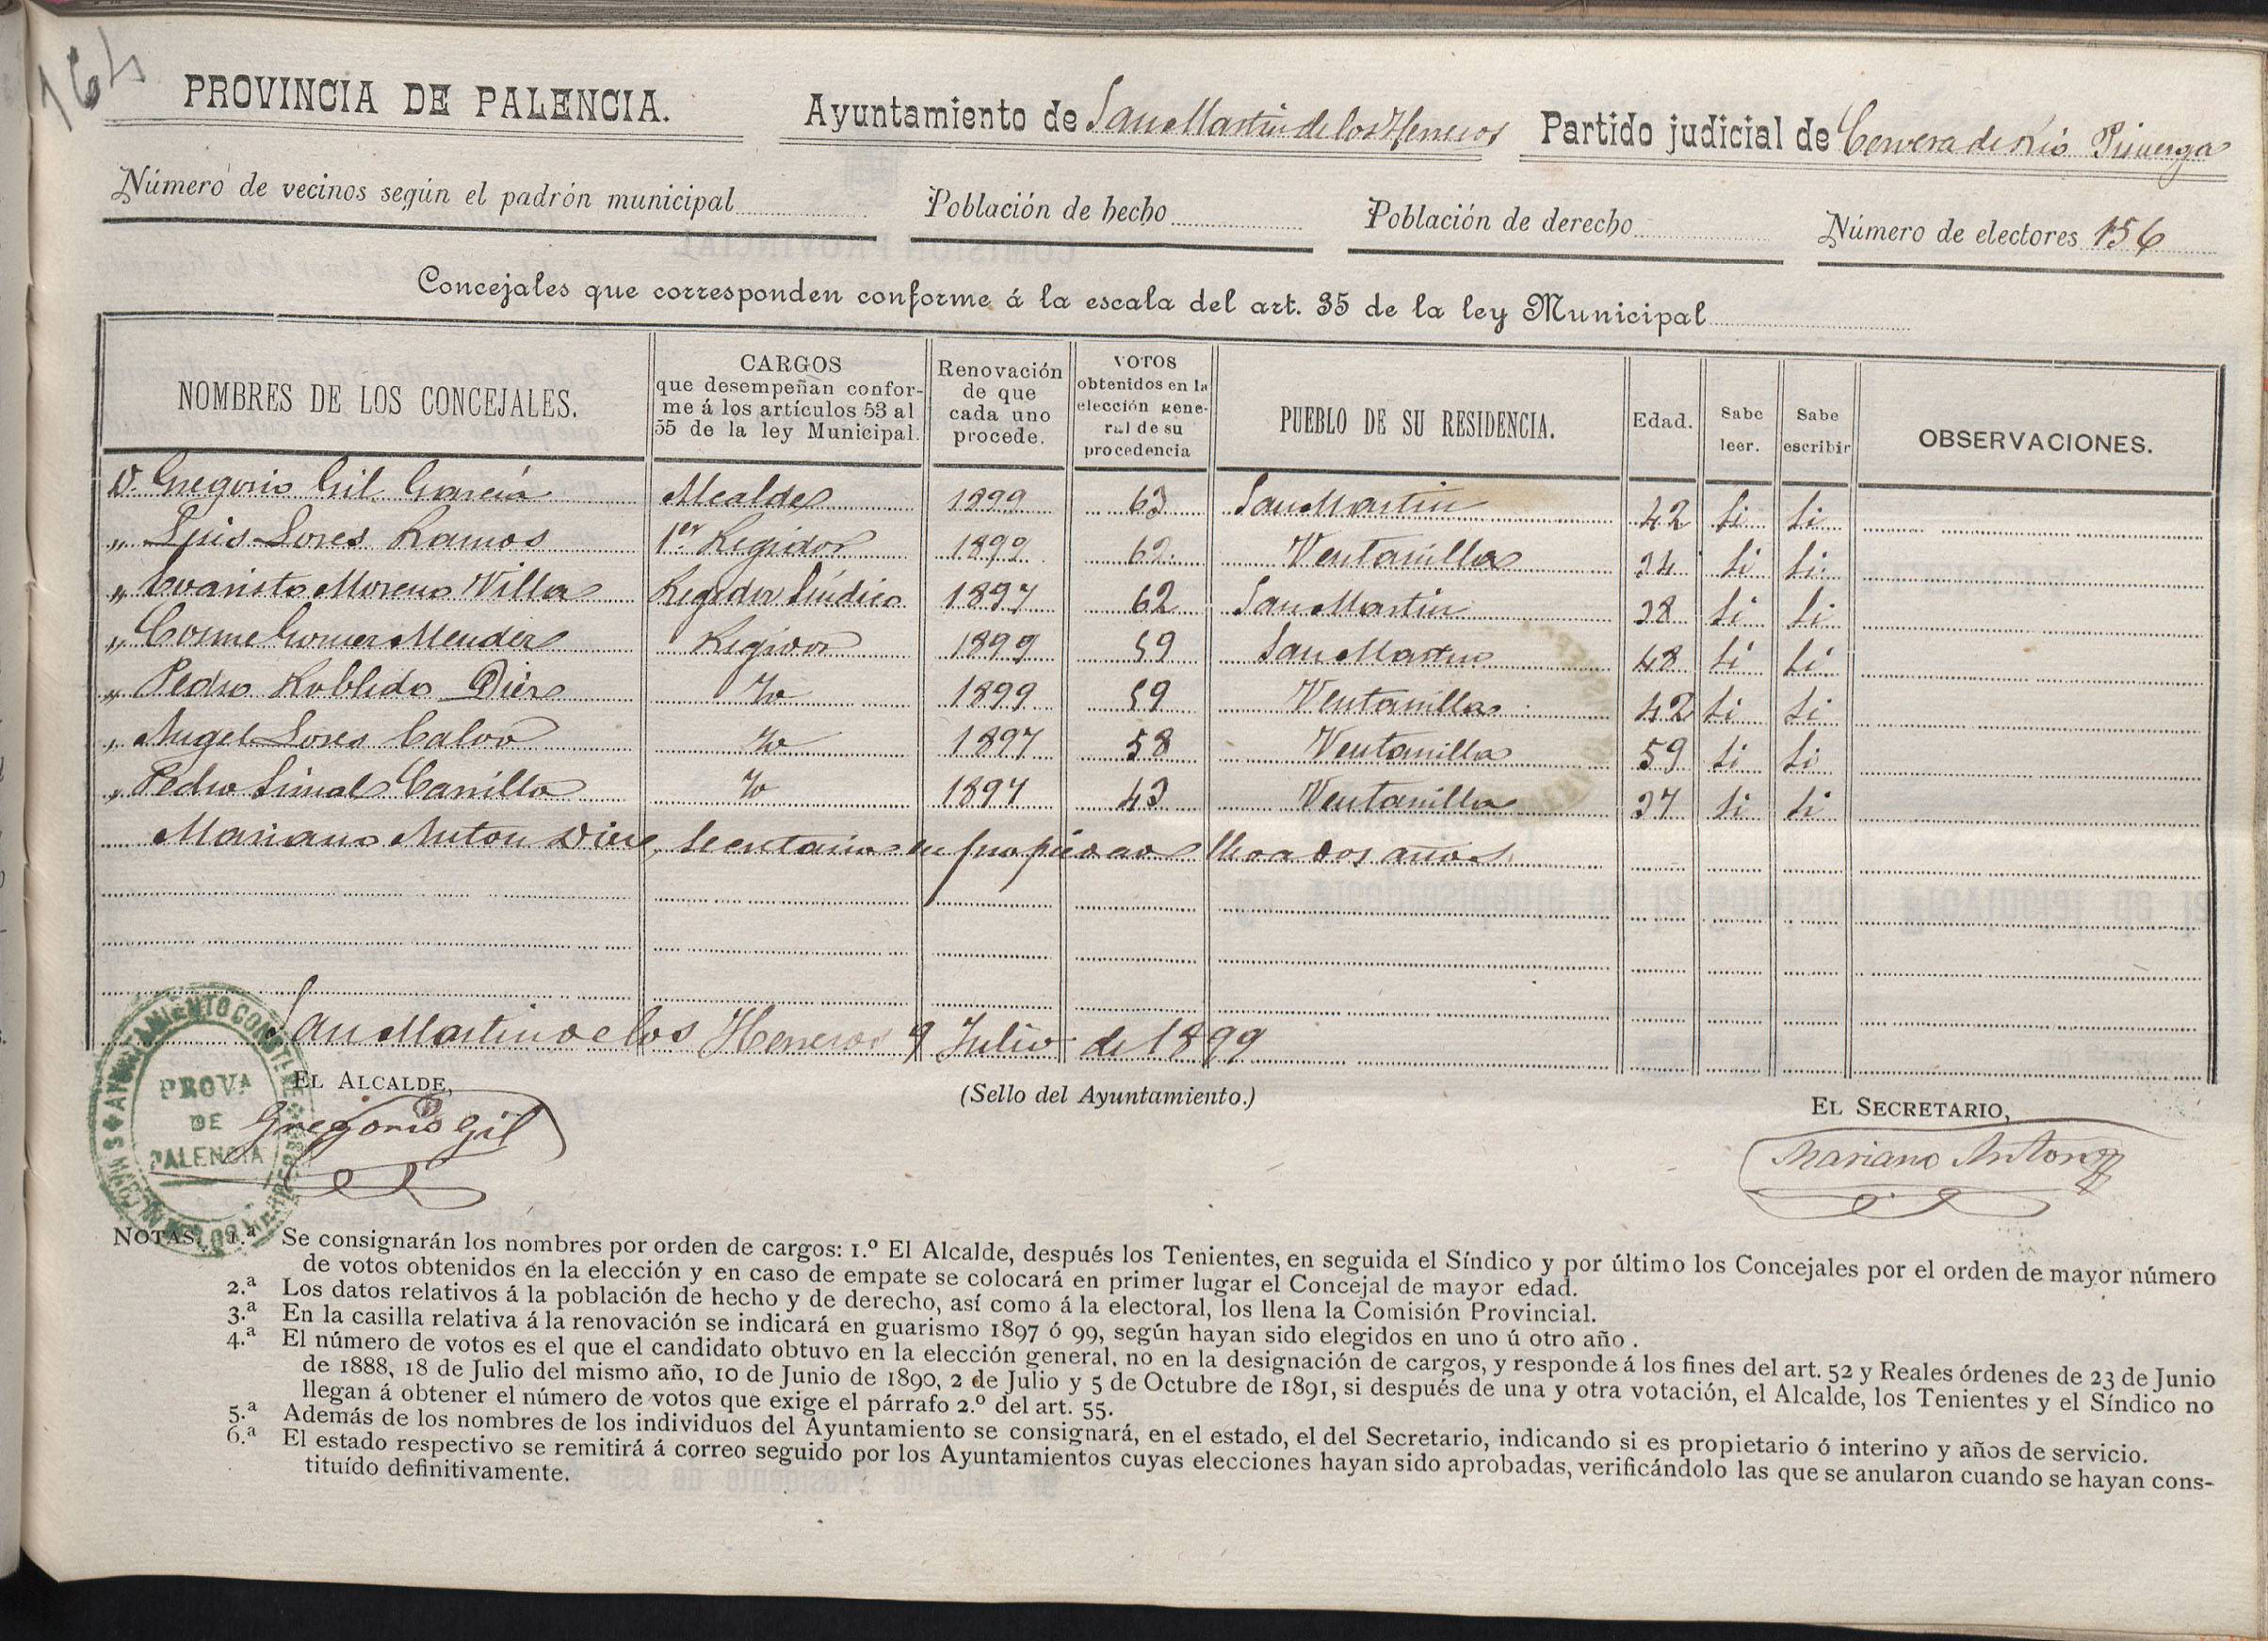 164
PROVINCIA DE PALENCIA. Ayuntamiento de San Martin de los Herreros Partido judicial de Cervera de Rio Pisuerga
Número de vecinos según el padrón municipal Población de hecho Población de derecho Número de electores 156
Concejales que corresponden conforme á la escala del art. 35 de la ley Municipal
NOMBRES DE LOS CONCEJALES. CARGOS que desempeñan conforme á los artículos 53 al 55 de la ley Municipal. Renovación de que cada uno procede. VOTOS obtenidos en la elección general de su procedencia PUEBLO DE SU RESIDENCIA. Edad. Sabe leer. Sabe escribir OBSERVACIONES.
D. Gregorio Gil Garcia Alcalde 1899 63 San Martin 42 Si Si
" Luis Lores Ramos 1er Regidor 1899 62 Ventanilla 34 Si Si
" Evaristo Moreno Villa Regidor Síndico 1897 62 San Martin 38 Si Si
" Cosme Gomez Mendez Regidor 1899 59 San Martin 48 Si Si
" Pedro Robledo Diez Yo 1899 59 Ventanilla 42 Si Si
" Angel Lores Calvo Yo 1897 58 Ventanilla 59 Si Si
" Pedro Simal Canillo Yo 1897 43 Ventanilla 37 Si Si
Mariano Anton Diez, Secretario en propiedad lleva dos años
San Martin de los Herreros 9 Julio de 1899
EL ALCALDE, (Sello del Ayuntamiento.) EL SECRETARIO,
Gregorio Gil Mariano Anton
PROVA
DE
PALENCIA
NOTAS. 1.ª Se consignarán los nombres por orden de cargos: 1.º El Alcalde, después los Tenientes, en seguida el Síndico y por último los Concejales por el orden de mayor número
de votos obtenidos en la elección y en caso de empate se colocará en primer lugar el Concejal de mayor edad.
2.ª Los datos relativos á la población de hecho y de derecho, así como á la electoral, los llena la Comisión Provincial.
3.ª En la casilla relativa á la renovación se indicará en guarismo 1897 ó 99, según hayan sido elegidos en uno ú otro año .
4.ª El número de votos es el que el candidato obtuvo en la elección general, no en la designación de cargos, y responde á los fines del art. 52 y Reales órdenes de 23 de Junio
de 1888, 18 de Julio del mismo año, 10 de Junio de 1890, 2 de Julio y 5 de Octubre de 1891, si después de una y otra votación, el Alcalde, los Tenientes y el Síndico no
llegan á obtener el número de votos que exige el párrafo 2.º del art. 55.
5.ª Además de los nombres de los individuos del Ayuntamiento se consignará, en el estado, el del Secretario, indicando si es propietario ó interino y años de servicio.
6.ª El estado respectivo se remitirá á correo seguido por los Ayuntamientos cuyas elecciones hayan sido aprobadas, verificándolo las que se anularon cuando se hayan cons-
tituído definitivamente.